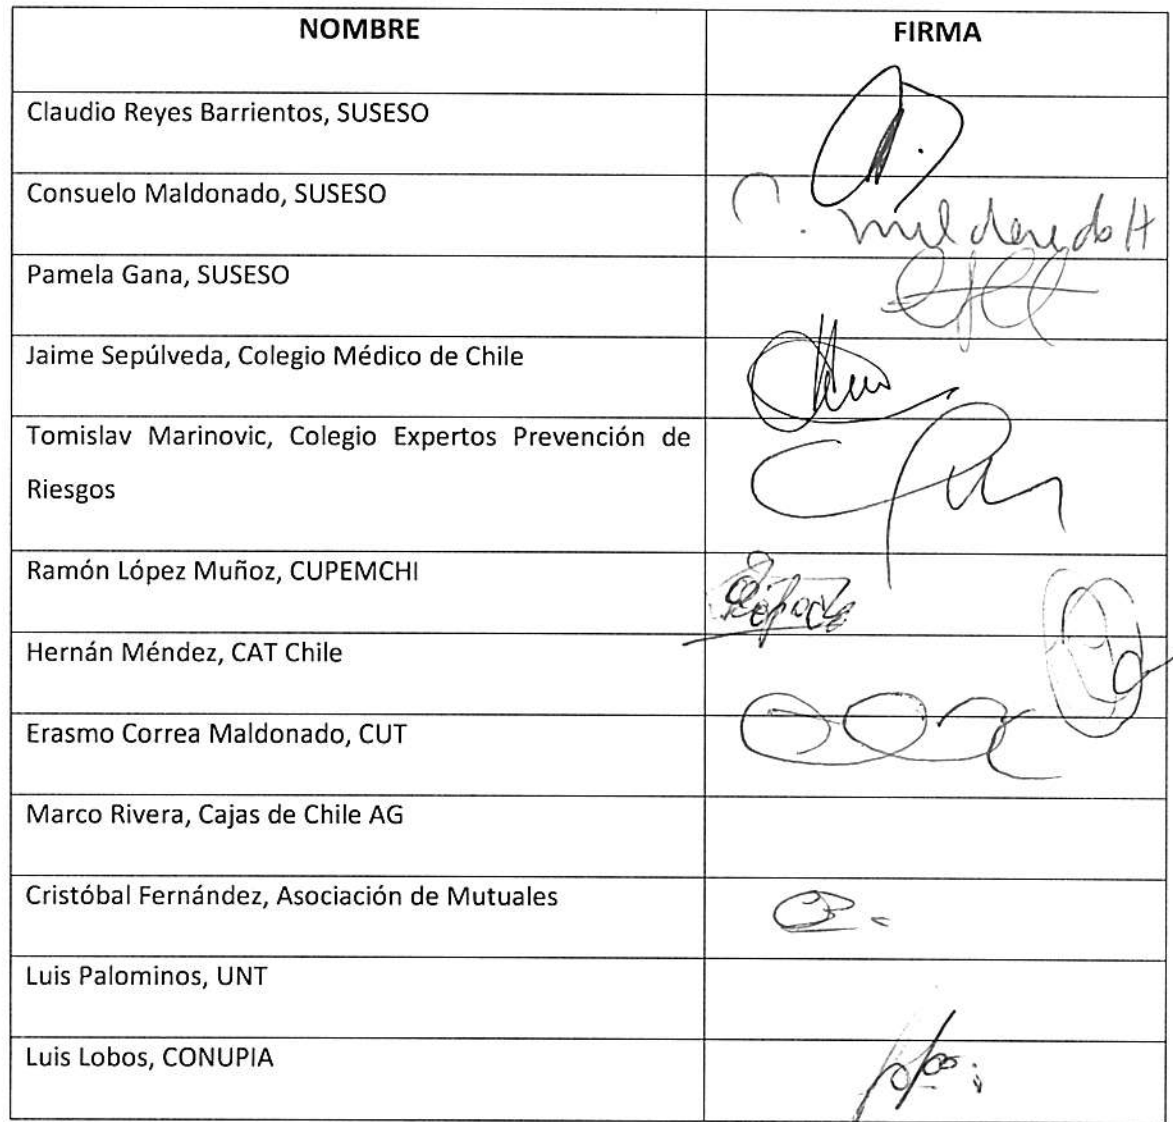 NOMBRE FIRMA
Claudio Reyes Barrientos, SUSESO
Consuelo Maldonado, SUSESO
C. Maldonado H
Pamela Gana, SUSESO
Jaime Sepúlveda, Colegio Médico de Chile
Tomislav Marinovic, Colegio Expertos Prevención de
Riesgos
Ramón López Muñoz, CUPEMCHI
Hernán Méndez, CAT Chile
Erasmo Correa Maldonado, CUT
Marco Rivera, Cajas de Chile AG
Cristóbal Fernández, Asociación de Mutuales
Luis Palominos, UNT
Luis Lobos, CONUPIA